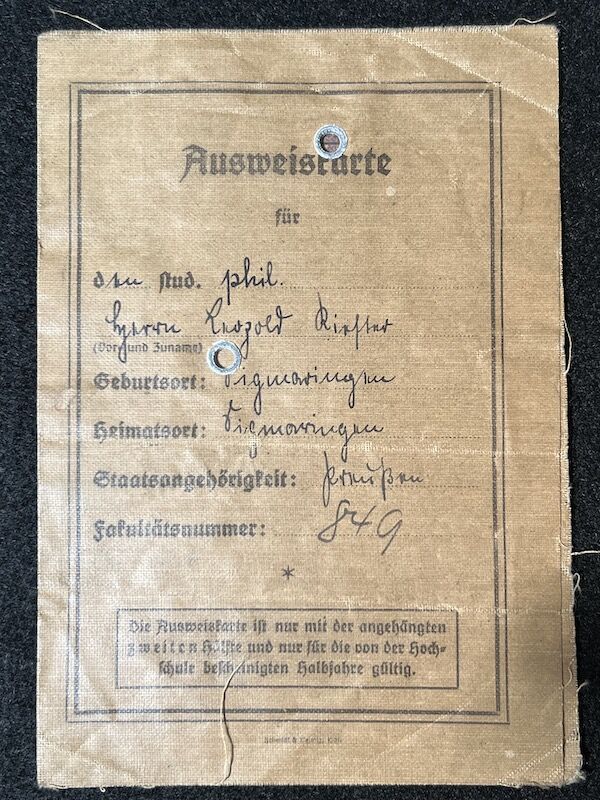 Ausweiskarte
für
den stud. phil.
Herrn Leopold Kiefter
(Vor- und Zuname)
Geburtsort: Sigmaringen
Heimatsort: Sigmaringen
Staatsangehörigkeit: Preußen
Fakultätsnummer: 849
*
Die Ausweiskarte ist nur mit der angehängten
zweiten Hälfte und nur für die von der Hoch-
schule bescheinigten Halbjahre gültig.